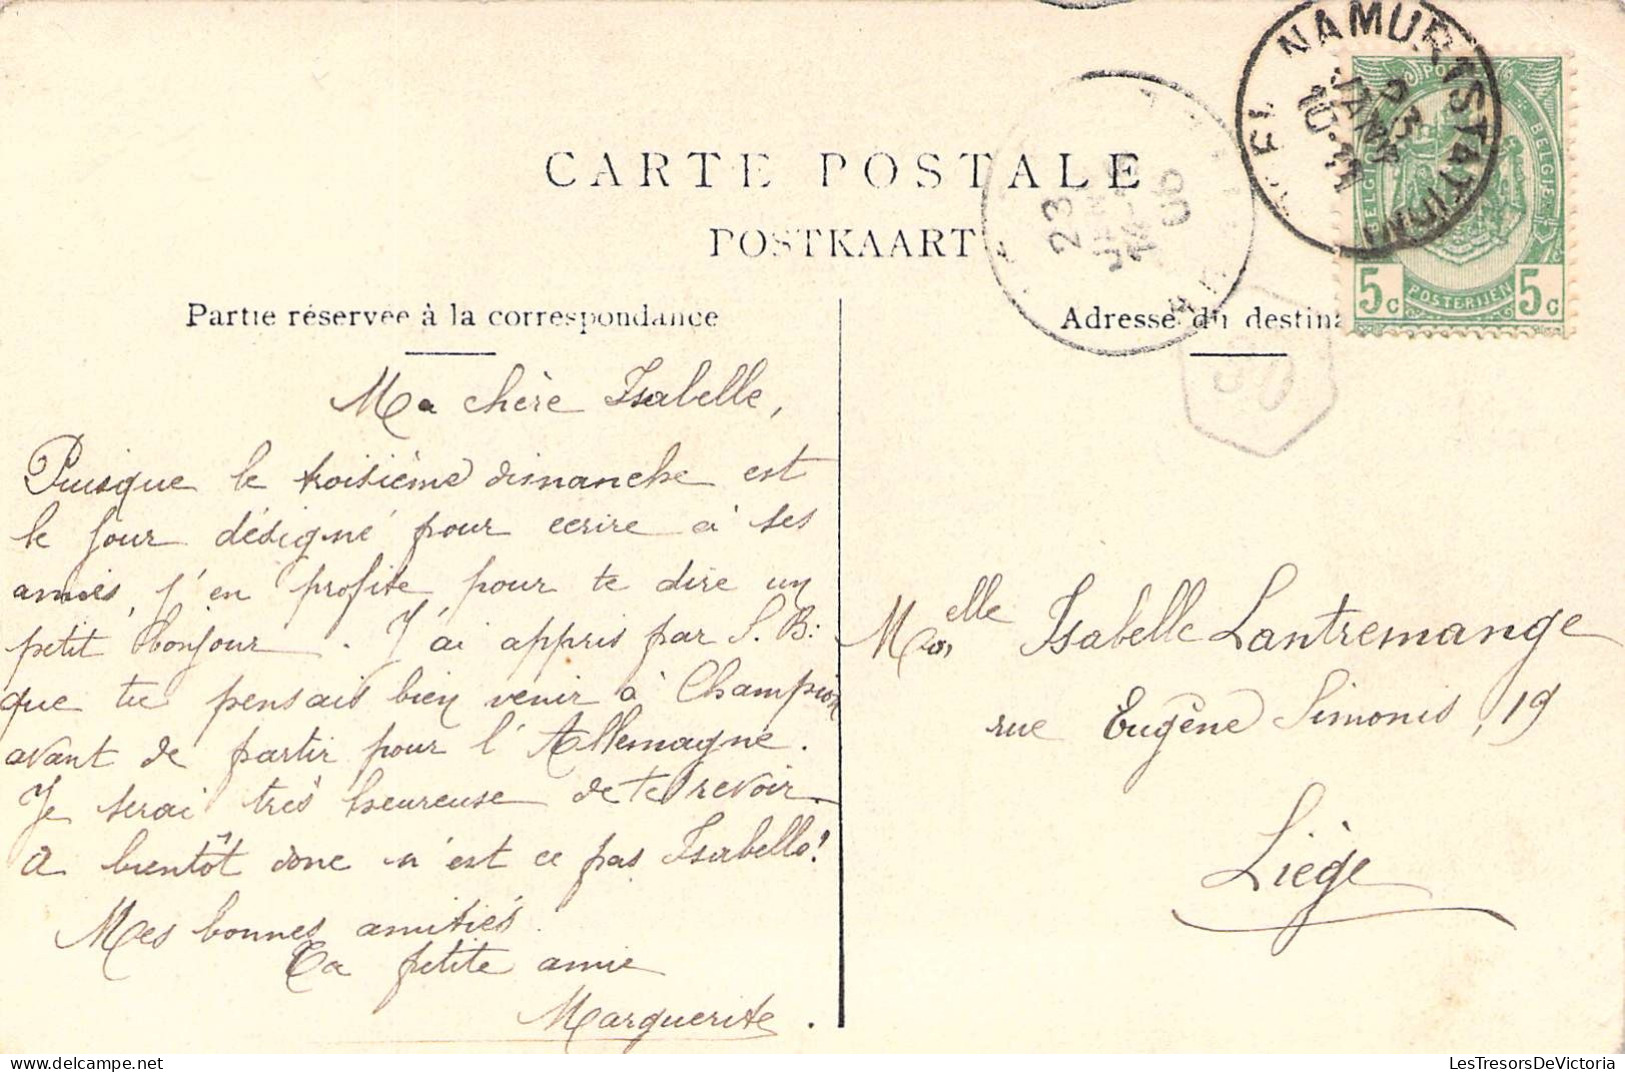 CARTE POSTALE
POSTKAART
Partie réservée à la correspondance
Ma chère Isabelle,
Puisque le troisième dimanche est
le jour désigné pour ecrire à ses
amies, j'en profite pour te dire un
petit bonjour. J'ai appris par S. B:
que tu pensais bien venir à Champion
avant de partir pour l'Allemagne.
Je serai très heureuse de te revoir
A bientôt donc n'est ce pas Isabelle!
Mes bonnes amitiés.
Ta petite amie
Marguerite.
Adresse du destina
NAMUR (STATION)
23
JANV
10-11
23
06
POSTES
BELGIQUE
BELGIË
5c POSTERIJEN 5c
Melle Isabelle Lantremange
rue Eugène Simonis, 19
Liège
LesTresorsDeVictoria